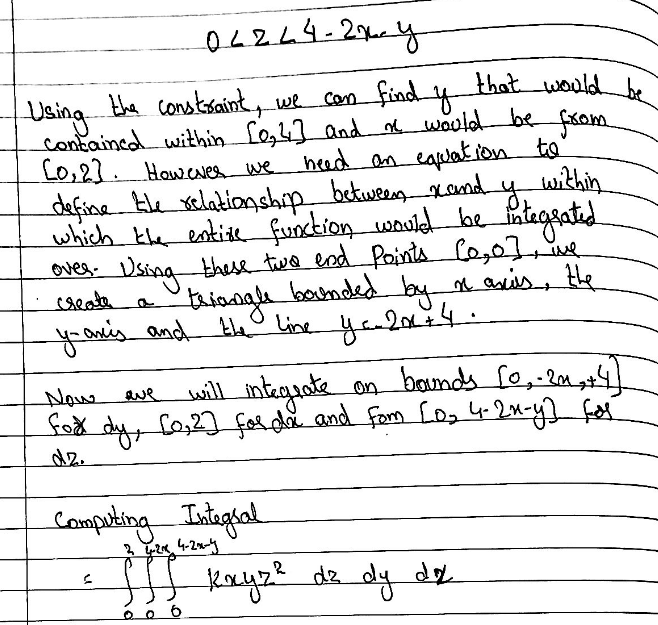 0 < z < 4 - 2x - y
Using the constraint, we can find y that would be
contained within [0,4] and x would be from
[0,2]. However we need an equation to
define the relationship between x and y within
which the entire function would be integrated
over. Using these two end Points [0,0], we
create a triangle bounded by x axis, the
y-axis and the line y = -2x + 4.
Now we will integrate on bounds [0, -2x, +4]
for dy, [0,2] for dx and fom [0, 4-2x-y] for
dz.
Computing Integral
2 4-2x 4-2x-y
= ∫ ∫ ∫ kxyz² dz dy dx
0 0 0